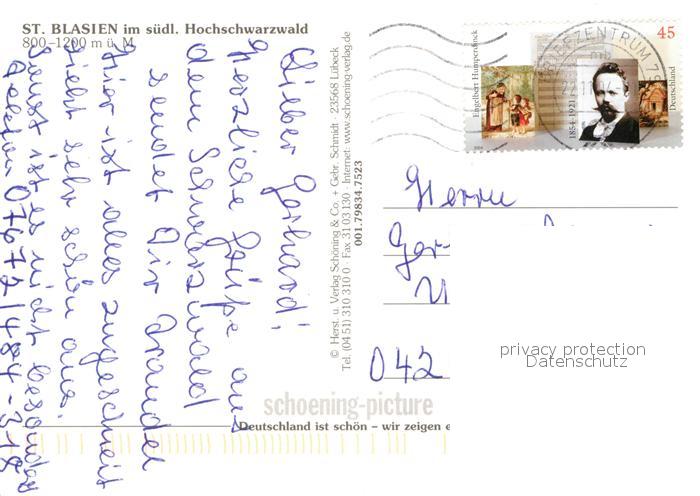 ST. BLASIEN im südl. Hochschwarzwald
800–1200 m ü. M.
Lieber Gerhard!
Herzliche Grüße aus
dem Schwarzwald
sendet Dir
Hier ist alles zugeschneit
sieht sehr schön aus.
Sonst ist es nicht besonders
Telefon 07672/484-318
© Herst. u. Verlag Schöning & Co. + Gebr. Schmidt · 23568 Lübeck
Tel. (04 51) 310 310 0 · Fax 31 03 130 · Internet: www.schoening-verlag.de
001.79834.7523
Engelbert Humperdinck
1854-1921
45
Deutschland
BRIEFZENTRUM 79
Herrn
Ger-
042
privacy protection
Datenschutz
schoening-picture
Deutschland ist schön – wir zeigen e